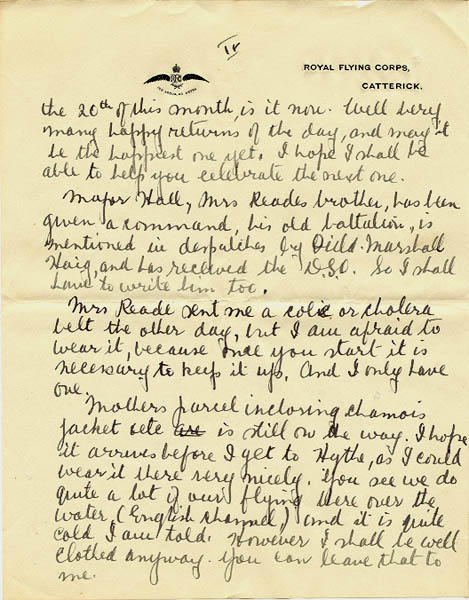 IV
ROYAL FLYING CORPS,
CATTERICK.
the 20th of this month, is it now. Well very
many happy returns of the day, and may it
be the happiest one yet. I hope I shall be
able to help you celebrate the next one.
Major Hall, Mrs Reades brother, has been
given a command, his old battalion, is
mentioned in despatches by Field. Marshall
Haig, and has received the D.S.O. So I shall
have to write him too.
Mrs Reade sent me a colic or cholera
belt the other day, but I am afraid to
wear it, because once you start it is
necessary to keep it up. And I only have
one.
Mothers parcel inclosing chamois
jacket are is still on the way. I hope
it arrives before I get to Hythe, as I could
wear it there very nicely. You see we do
quite a lot of our flying there over the
water, (English Channel,) and it is quite
cold I am told. However I shall be well
clothed anyway. You can leave that to
me.